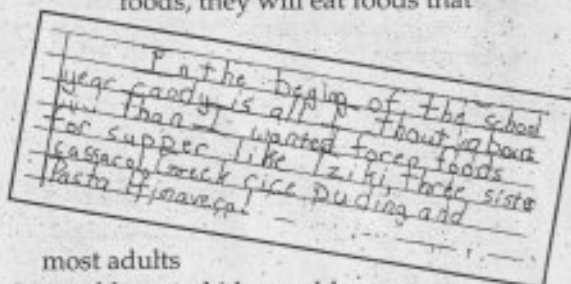 foods, they will eat foods that
In the beging of the school
year candy is all I thout about
now than I wanted foren foods
for supper like Tziki, three sister
cassacol Greek rice Puding and
Pasta Primavera!
most adults